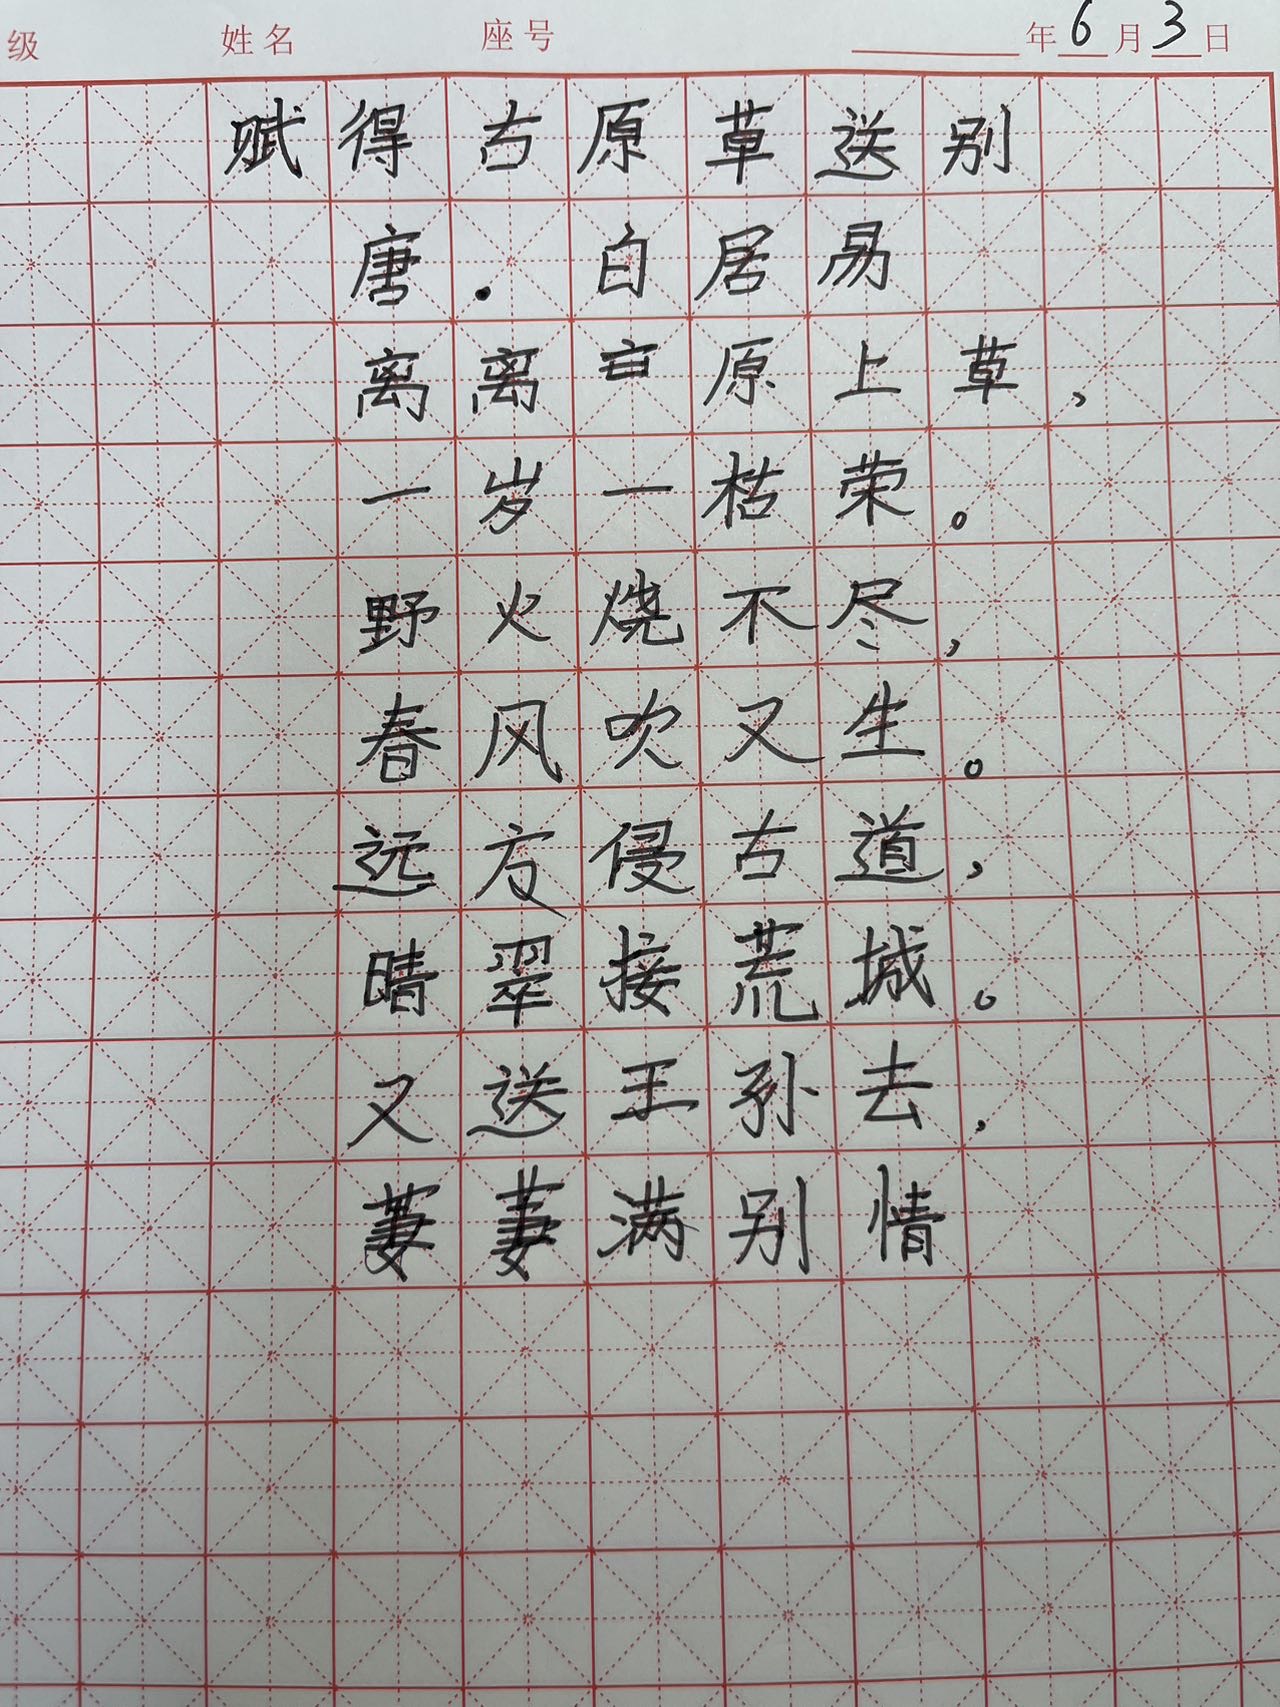 级 姓名 座号 年6月3日
赋得古原草送别
唐.白居易
离离原上草，
一岁一枯荣。
野火烧不尽，
春风吹又生。
远方侵古道，
晴翠接荒城。
又送王孙去，
萋萋满别情